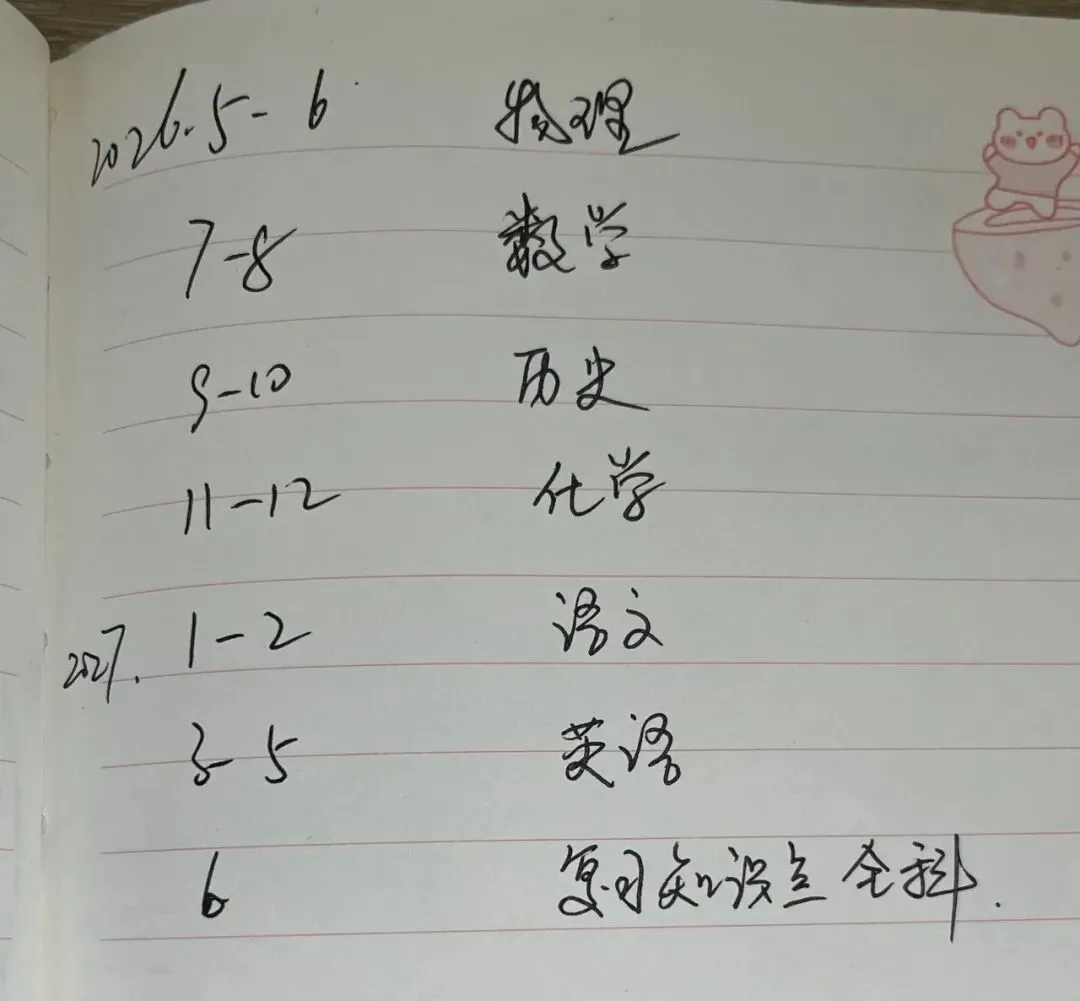 2026.5-6 物理
7-8 数学
9-10 历史
11-12 化学
2027. 1-2 语文
3-5 英语
6 复习知识点全科.